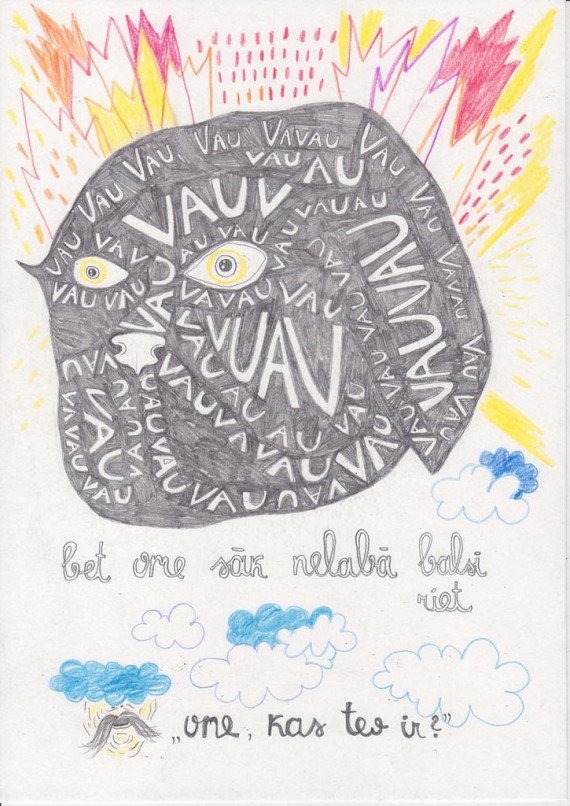 VAU VAU VAU VAU VAVAU VAU VAU VAVAU VAU VAU
VAU VAU
VAUV
VAU VAV
AU VAU
VAUVAUAU
VAU VAU
VAVAU VAU
VAU
VAUVAU
VUAV
VAU
VAU
VAU
bet ome sāk nelabā balsi
riet
„ome, kas tev ir?”